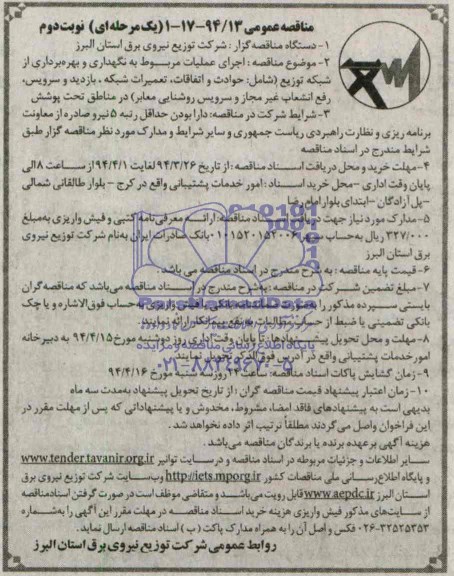 مناقصه عمومی ۹۴/۱۳-۱۷-۱ (یک مرحله‌ای) نوبت دوم
۱- دستگاه مناقصه گزار : شرکت توزیع نیروی برق استان البرز
۲- موضوع مناقصه : اجرای عملیات مربوط به نگهداری و بهره‌برداری از
شبکه توزیع (شامل: حوادث و اتفاقات، تعمیرات شبکه، بازدید و سرویس،
رفع انشعاب غیر مجاز و سرویس روشنایی معابر) در مناطق تحت پوشش
۳- شرایط شرکت در مناقصه: دارا بودن حداقل رتبه ۵ نیرو صادره از معاونت
برنامه ریزی و نظارت راهبردی ریاست جمهوری و سایر شرایط و مدارک مورد نظر مناقصه گزار طبق
شرایط مندرج در اسناد مناقصه
۴- مهلت خرید و محل دریافت اسناد مناقصه : از تاریخ ۹۴/۳/۲۶ لغایت ۹۴/۴/۱ از ساعت ۸ الی
پایان وقت اداری - محل خرید اسناد : امور خدمات پشتیبانی واقع در کرج - بلوار طالقانی شمالی
-پل آزادگان - ابتدای بلوار امام رضا
۵- مدارک مورد نیاز جهت دریافت اسناد مناقصه: ارائه معرفی نامه کتبی و فیش واریزی به مبلغ
۳۲۷/۰۰۰ ریال به حساب بانک صادرات ایران به نام شرکت توزیع نیروی
برق استان البرز
۶- قیمت پایه مناقصه : به شرح مندرج در اسناد مناقصه می باشد.
۷- مبلغ تضمین شرکت در مناقصه: به شرح مندرج در اسناد مناقصه می‌باشد که مناقصه گران
بایستی سپرده مذکور را بصورت ضمانتنامه بانکی یا فیش واریزی به حساب فوق الاشاره و یا چک
بانکی تضمینی یا ضبط از حساب مطالبات به نفع مناقصه گزار ارائه نمایند.
۸- مهلت و محل تحویل پیشنهادها: تا پایان وقت اداری روز دوشنبه مورخ ۹۴/۴/۱۵ به دبیرخانه
امور خدمات پشتیبانی واقع در آدرس فوق الذکر تحویل نمایند.
۹- زمان گشایش پاکات اسناد مناقصه: ساعت روز سه شنبه مورخ ۹۴/۴/۱۶
۱۰- زمان اعتبار پیشنهاد قیمت مناقصه گران : از تاریخ تحویل پیشنهاد به مدت سه ماه
بدیهی است به پیشنهادهای فاقد امضا، مشروط، مخدوش و یا پیشنهاداتی که پس از مهلت مقرر در
این فراخوان واصل می گردند مطلقا ترتیب اثر داده نخواهد شد.
هزینه آگهی برعهده برنده یا برندگان مناقصه می‌باشد.
سایر اطلاعات و جزئیات مربوطه در اسناد مناقصه و در سایت توانیر www.tender.tavanir.org.ir
و پایگاه اطلاع رسانی ملی مناقصات کشور http://iets.mporg.ir و وب سایت شرکت توزیع نیروی برق
استان البرز www.aepdc.ir قابل رویت می‌باشد و متقاضی موظف است در صورت گرفتن اسناد مناقصه
از سایت‌های مذکور فیش واریزی هزینه خرید اسناد مناقصه در مهلت مقرر این آگهی را به شماره
۰۲۶-۳۲۵۲۵۳۵۳ فکس و اصل آن را به همراه مدارک پاکت (ب) اسناد مناقصه ارسال نماید.
روابط عمومی شرکت توزیع نیروی برق استان البرز
پایگاه اطلاع رسانی مناقصه و مزایده
۰۲۱-۸۸۳۴۹۶۷۰-۵